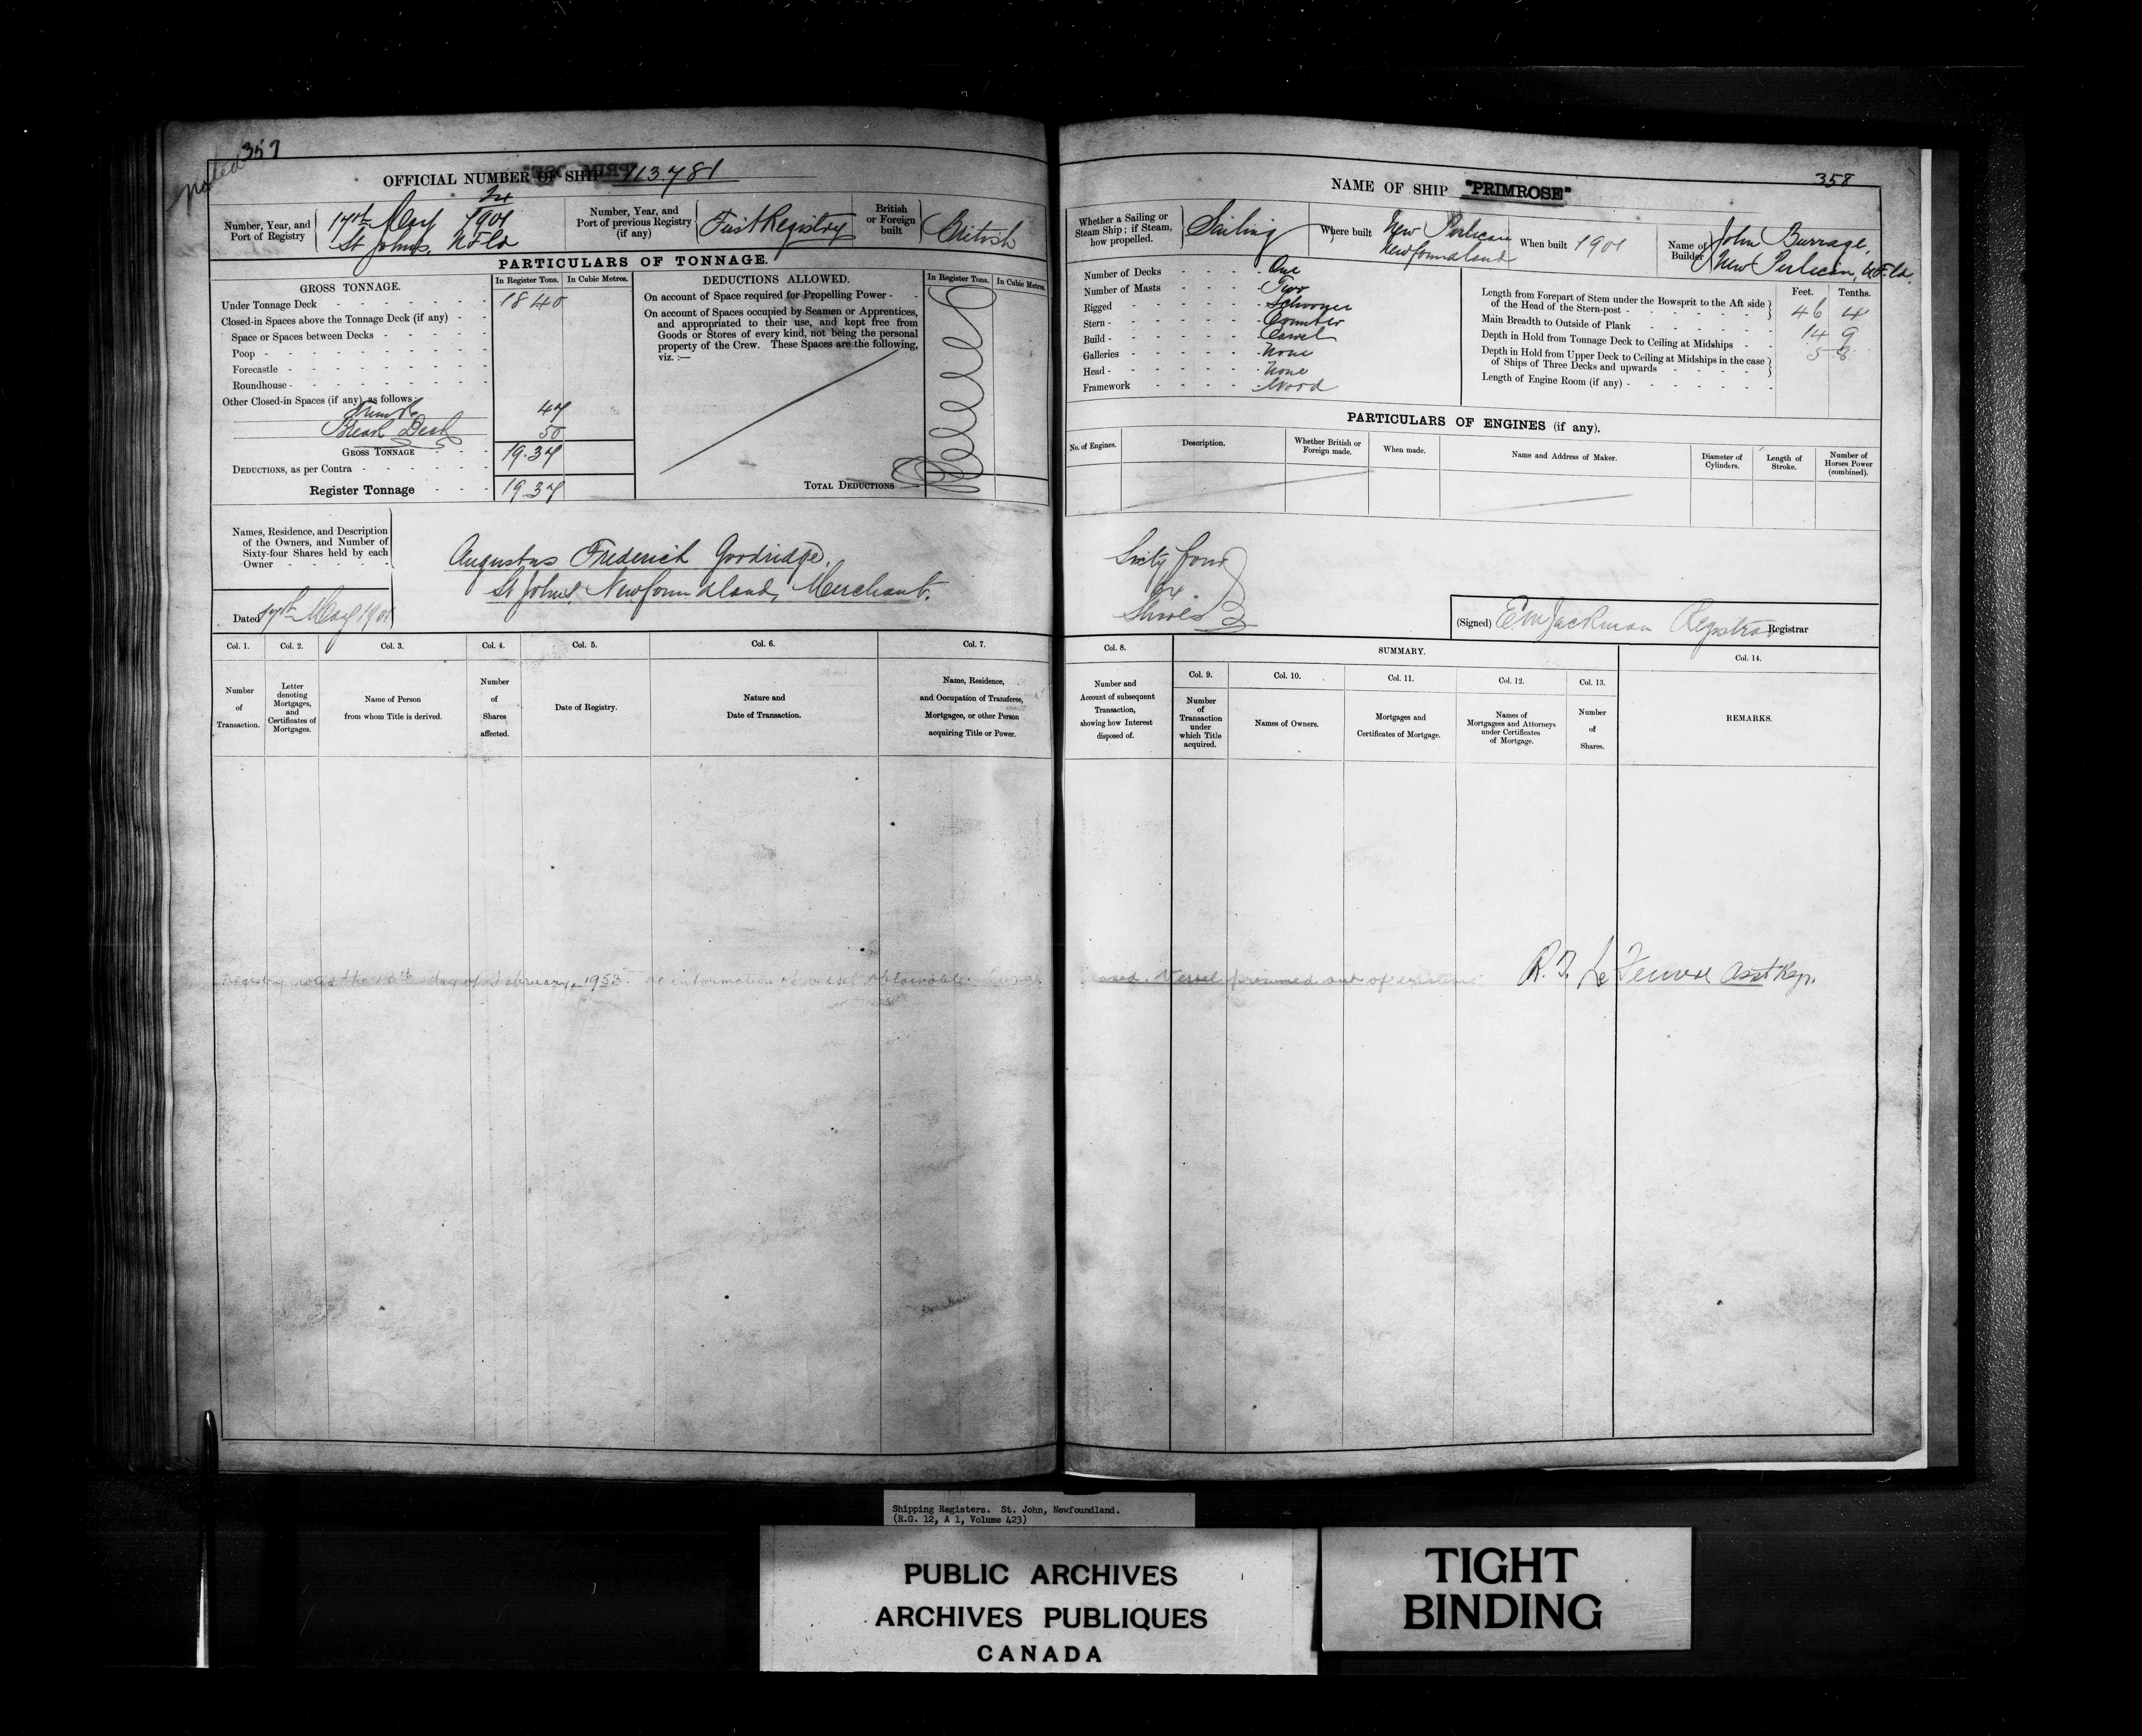 noted
357
OFFICIAL NUMBER OF SHIP 113.781
Number, Year, and Port of Registry
17th May 1901
St Johns, NFld
Number, Year, and Port of previous Registry (if any)
First Registry
British or Foreign built
British
PARTICULARS OF TONNAGE.
GROSS TONNAGE.
In Register Tons.
In Cubic Metres.
Under Tonnage Deck 18 40
Closed-in Spaces above the Tonnage Deck (if any)
Space or Spaces between Decks
Poop
Forecastle
Roundhouse
Other Closed-in Spaces (if any) as follows:
47
Break Deck 50
GROSS TONNAGE 19.37
DEDUCTIONS, as per Contra
Register Tonnage 19.37
DEDUCTIONS ALLOWED.
In Register Tons.
In Cubic Metres.
On account of Space required for Propelling Power
On account of Spaces occupied by Seamen or Apprentices,
and appropriated to their use, and kept free from
Goods or Stores of every kind, not being the personal
property of the Crew. These Spaces are the following,
viz. :—
TOTAL DEDUCTIONS
Names, Residence, and Description
of the Owners, and Number of
Sixty-four Shares held by each
Owner
Augustus Frederick Goodridge,
St Johns, Newfoundland, Merchant.
Dated 17th May 1901
Col. 1.
Number
of
Transaction.
Col. 2.
Letter
denoting
Mortgages,
and
Certificates of
Mortgages.
Col. 3.
Name of Person
from whom Title is derived.
Col. 4.
Number
of
Shares
affected.
Col. 5.
Date of Registry.
Col. 6.
Nature and
Date of Transaction.
Col. 7.
Name, Residence,
and Occupation of Transferee,
Mortgagee, or other Person
acquiring Title or Power.
358
NAME OF SHIP "PRIMROSE"
Whether a Sailing or
Steam Ship; if Steam,
how propelled.
Sailing
Where built
New Perlican
Newfoundland
When built 1901
Name of Builder
John Burrage,
New Perlican, NFld.
Number of Decks One
Number of Masts Two
Rigged Schooner
Stern Counter
Build Carvel
Galleries None
Head None
Framework Wood
Feet. Tenths.
Length from Forepart of Stem under the Bowsprit to the Aft side
of the Head of the Stern-post 46 4
Main Breadth to Outside of Plank 14 9
Depth in Hold from Tonnage Deck to Ceiling at Midships 5 8
Depth in Hold from Upper Deck to Ceiling at Midships in the case
of Ships of Three Decks and upwards
Length of Engine Room (if any)
PARTICULARS OF ENGINES (if any).
No. of Engines.
Description.
Whether British or
Foreign made.
When made.
Name and Address of Maker.
Diameter of
Cylinders.
Length of
Stroke.
Number of
Horses Power
(combined).
Sixty four
64
Shares
(Signed) E.M. Jackman Registrar
Registrar
Col. 8.
Number and
Account of subsequent
Transaction,
showing how Interest
disposed of.
SUMMARY.
Col. 9.
Number
of
Transaction
under
which Title
acquired.
Col. 10.
Names of Owners.
Col. 11.
Mortgages and
Certificates of Mortgage.
Col. 12.
Names of
Mortgagees and Attorneys
under Certificates
of Mortgage.
Col. 13.
Number
of
Shares.
Col. 14.
REMARKS.
Registry the day of February, 1953. no information of vessel obtainable. Vessel presumed out of existence
Asst Reg.
Shipping Registers. St. John, Newfoundland.
(R.G. 12, A 1, Volume 423)
PUBLIC ARCHIVES
ARCHIVES PUBLIQUES
CANADA
TIGHT
BINDING